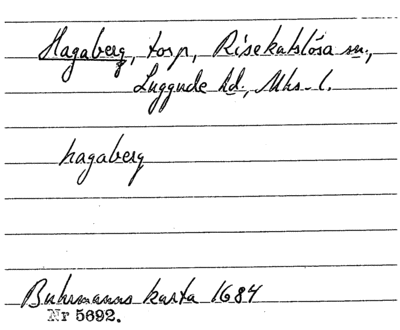 Hagaberg, torp, Risekatslösa sn.,
Luggude hd., Mhs. l.
hagaberg
Buhrmanns karta 1684
Nr 5692.